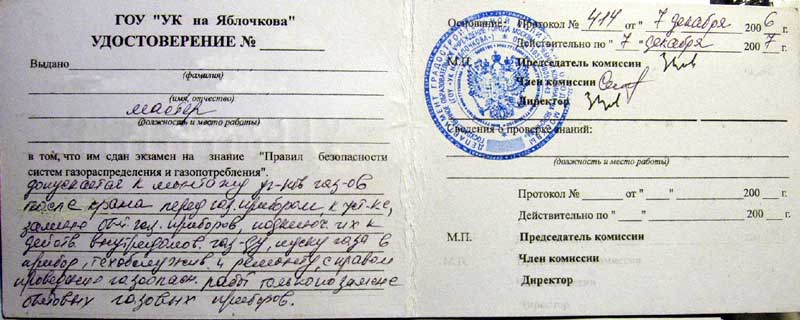 ГОУ "УК на Яблочкова"
УДОСТОВЕРЕНИЕ №
Выдано
(фамилия)
(имя, отчество)
мастер
(должность и место работы)
в том, что им сдан экзамен на знание "Правил безопасности
систем газораспределения и газопотребления".
допускается к монтажу газ-ов
после крана перед газ. прибором к уст-ке,
замене быт. газ. приборов, подключ. их к
действ. внутридомов. газ-ду, пуску газа в
прибор, техобслужив и ремонту, с правом
проведения газоопасн. работ только по замене
бытовых газовых приборов.
Основание: Протокол № 414 от "7 декабря 2006 г.
Действительно по "7" декабря 2007 г.
М.П. Председатель комиссии
Член комиссии
Директор
Сведения о проверке знаний:
(должность и место работы)
Протокол № от " " 200 г.
Действительно по " " 200 г.
М.П. Председатель комиссии
Член комиссии
Директор